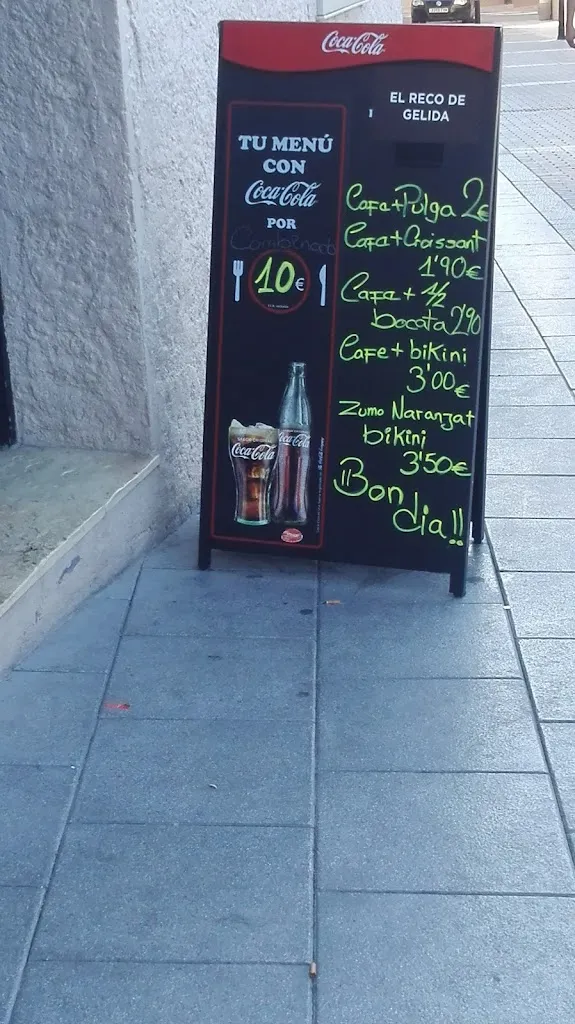 Coca-Cola
EL RECO DE
GELIDA
TU MENÚ
CON
Coca-Cola
POR
Combinado
10€
Cafe+Pulga 2€
Cafe+Croissant
1'90€
Cafe + 1/2
bocata 2'90
Cafe + bikini
3'00€
Zumo Naranjat
bikini
3'50€
¡¡Bon
dia!!
Coca-Cola
Coca-Cola